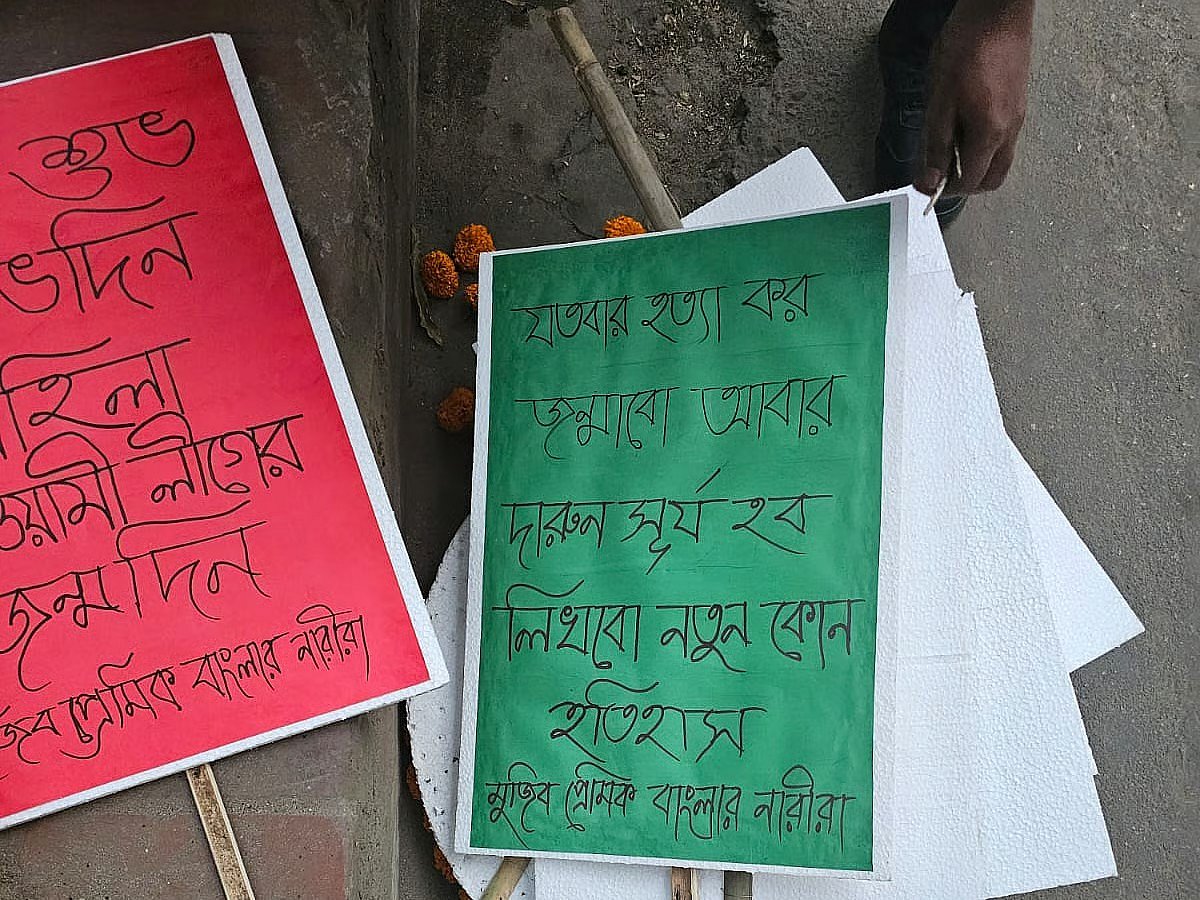 শুভ
ভদিন
হিলা
ওয়ামী লীগের
জন্মদিন
প্রেমিক বাংলার নারীরা
যতবার হত্যা কর
জন্মাবো আবার
দারুন সূর্য হব
লিখবো নতুন কোন
ইতিহাস
মুজিব প্রেমিক বাংলার নারীরা